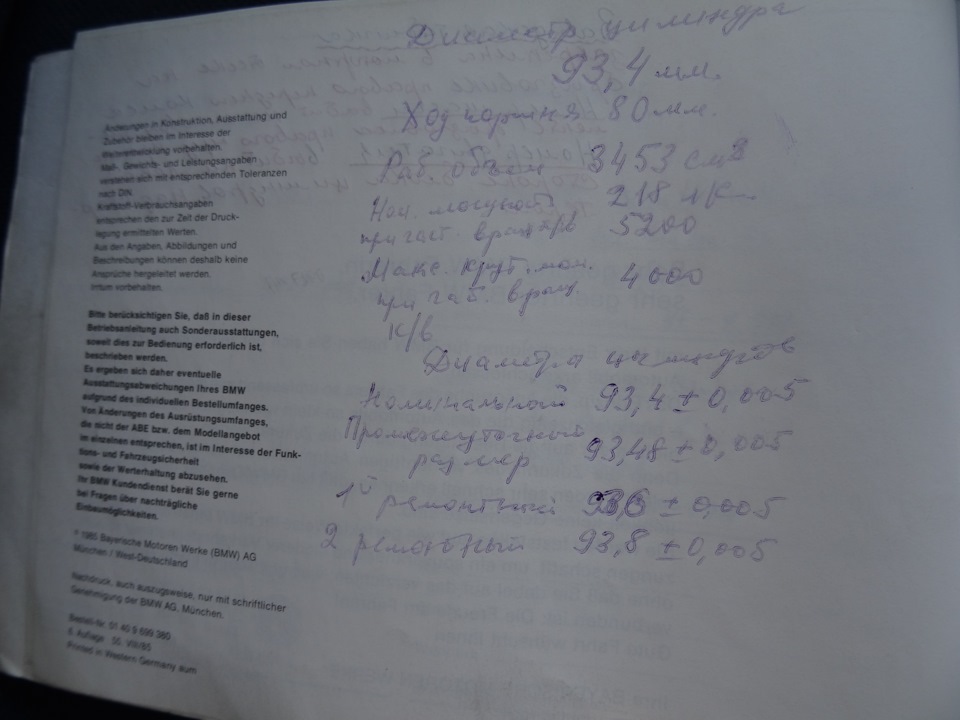 Änderungen in Konstruktion, Ausstattung und
Zubehör bleiben im Interesse der
Weiterentwicklung vorbehalten.
Maß-, Gewichts- und Leistungsangaben
verstehen sich mit entsprechenden Toleranzen
nach DIN.
Kraftstoff-Verbrauchsangaben
entsprechen den zur Zeit der Druck-
legung ermittelten Werten.
Aus den Angaben, Abbildungen und
Beschreibungen können deshalb keine
Ansprüche hergeleitet werden.
Irrtum vorbehalten.
Bitte berücksichtigen Sie, daß in dieser
Betriebsanleitung auch Sonderausstattungen,
soweit dies zur Bedienung erforderlich ist,
beschrieben werden.
Es ergeben sich daher eventuelle
Ausstattungsabweichungen Ihres BMW
aufgrund des individuellen Bestellumfanges.
Von Änderungen des Ausrüstungsumfanges,
die nicht der ABE bzw. dem Modellangebot
im einzelnen entsprechen, ist im Interesse der Funk-
tions- und Fahrzeugsicherheit
sowie der Werterhaltung abzusehen.
Ihr BMW Kundendienst berät Sie gerne
bei Fragen über nachträgliche
Einbaumöglichkeiten.
© 1985 Bayerische Motoren Werke (BMW) AG
München / West-Deutschland
Nachdruck, auch auszugsweise, nur mit schriftlicher
Genehmigung der BMW AG, München.
Bestell-Nr. 01 40 9 699 380
6. Auflage VIII/85
Printed in Western Germany
Диаметр цилиндра
93,4 мм.
Ход поршня 80 мм.
Раб. объем 3453 см3
Ном. мощность 218
при част. вращ к/в 5200
Макс. крут. мом. 4000
при част. вращ.
к/в
Диаметра цилиндров
Номинальный 93,4 ± 0,005
Промежуточный
размер 93,48 ± 0,005
1й ремонтный 93,6 ± 0,005
2 ремонтный 93,8 ± 0,005